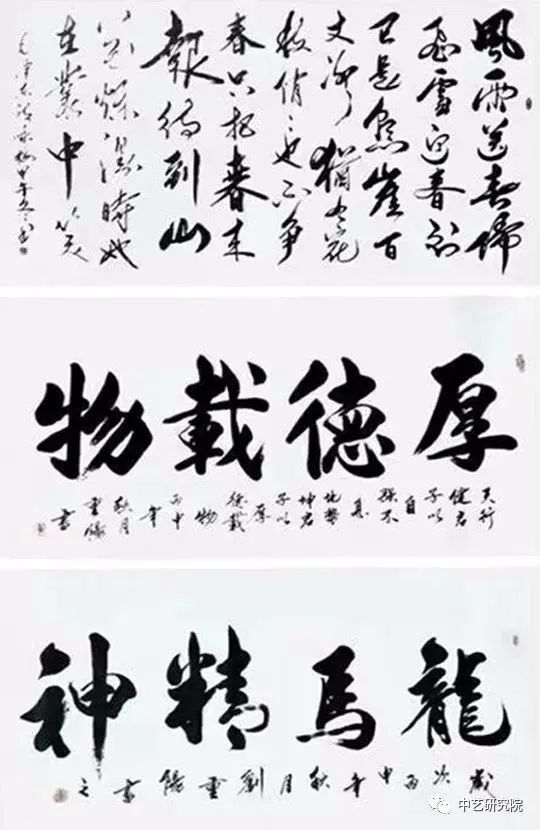 風雨送春歸
飛雪迎春到
已是懸崖百
丈冰猶有花
枝俏俏也不爭
春只把春來
報待到山
花爛漫時她
在叢中笑
厚德載物
天行
健君
子以
自
強不
息
地勢
坤君
子以
厚
德載
物
丙申
年
秋月
重陽
書
龍馬精神
歲次丙申年秋月劉重陽書之
中艺研究院